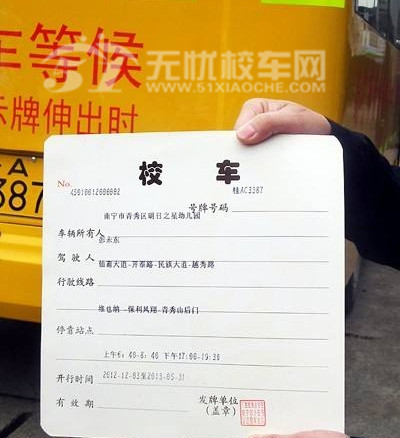 车等候
示牌伸出时
51 无忧校车网
WWW.51XIAOCHE.COM
A
387
校车
No. 45010012000002
号牌号码 桂AC3387
车辆所有人 南宁市青秀区明日之星幼儿园
驾驶人 彭永东
行驶线路 仙葫大道-开泰路-民族大道-越秀路
停靠站点 维也纳--保利凤翔-青秀山后门
开行时间 上午6:40-8:40 下午17:00-19:30
有效期 2012-12-03至2013-05-31
发牌单位
(盖章)